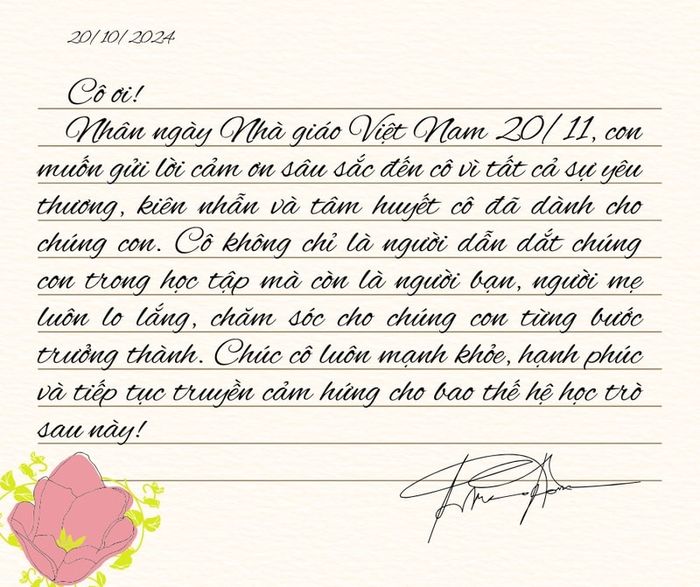 20/10/2024
Cô ơi!
Nhân ngày Nhà giáo Việt Nam 20/11, con
muốn gửi lời cảm ơn sâu sắc đến cô vì tất cả sự yêu
thương, kiên nhẫn và tâm huyết cô đã dành cho
chúng con. Cô không chỉ là người dẫn dắt chúng
con trong học tập mà còn là người bạn, người mẹ
luôn lo lắng, chăm sóc cho chúng con từng bước
trưởng thành. Chúc cô luôn mạnh khỏe, hạnh phúc
và tiếp tục truyền cảm hứng cho bao thế hệ học trò
sau này!